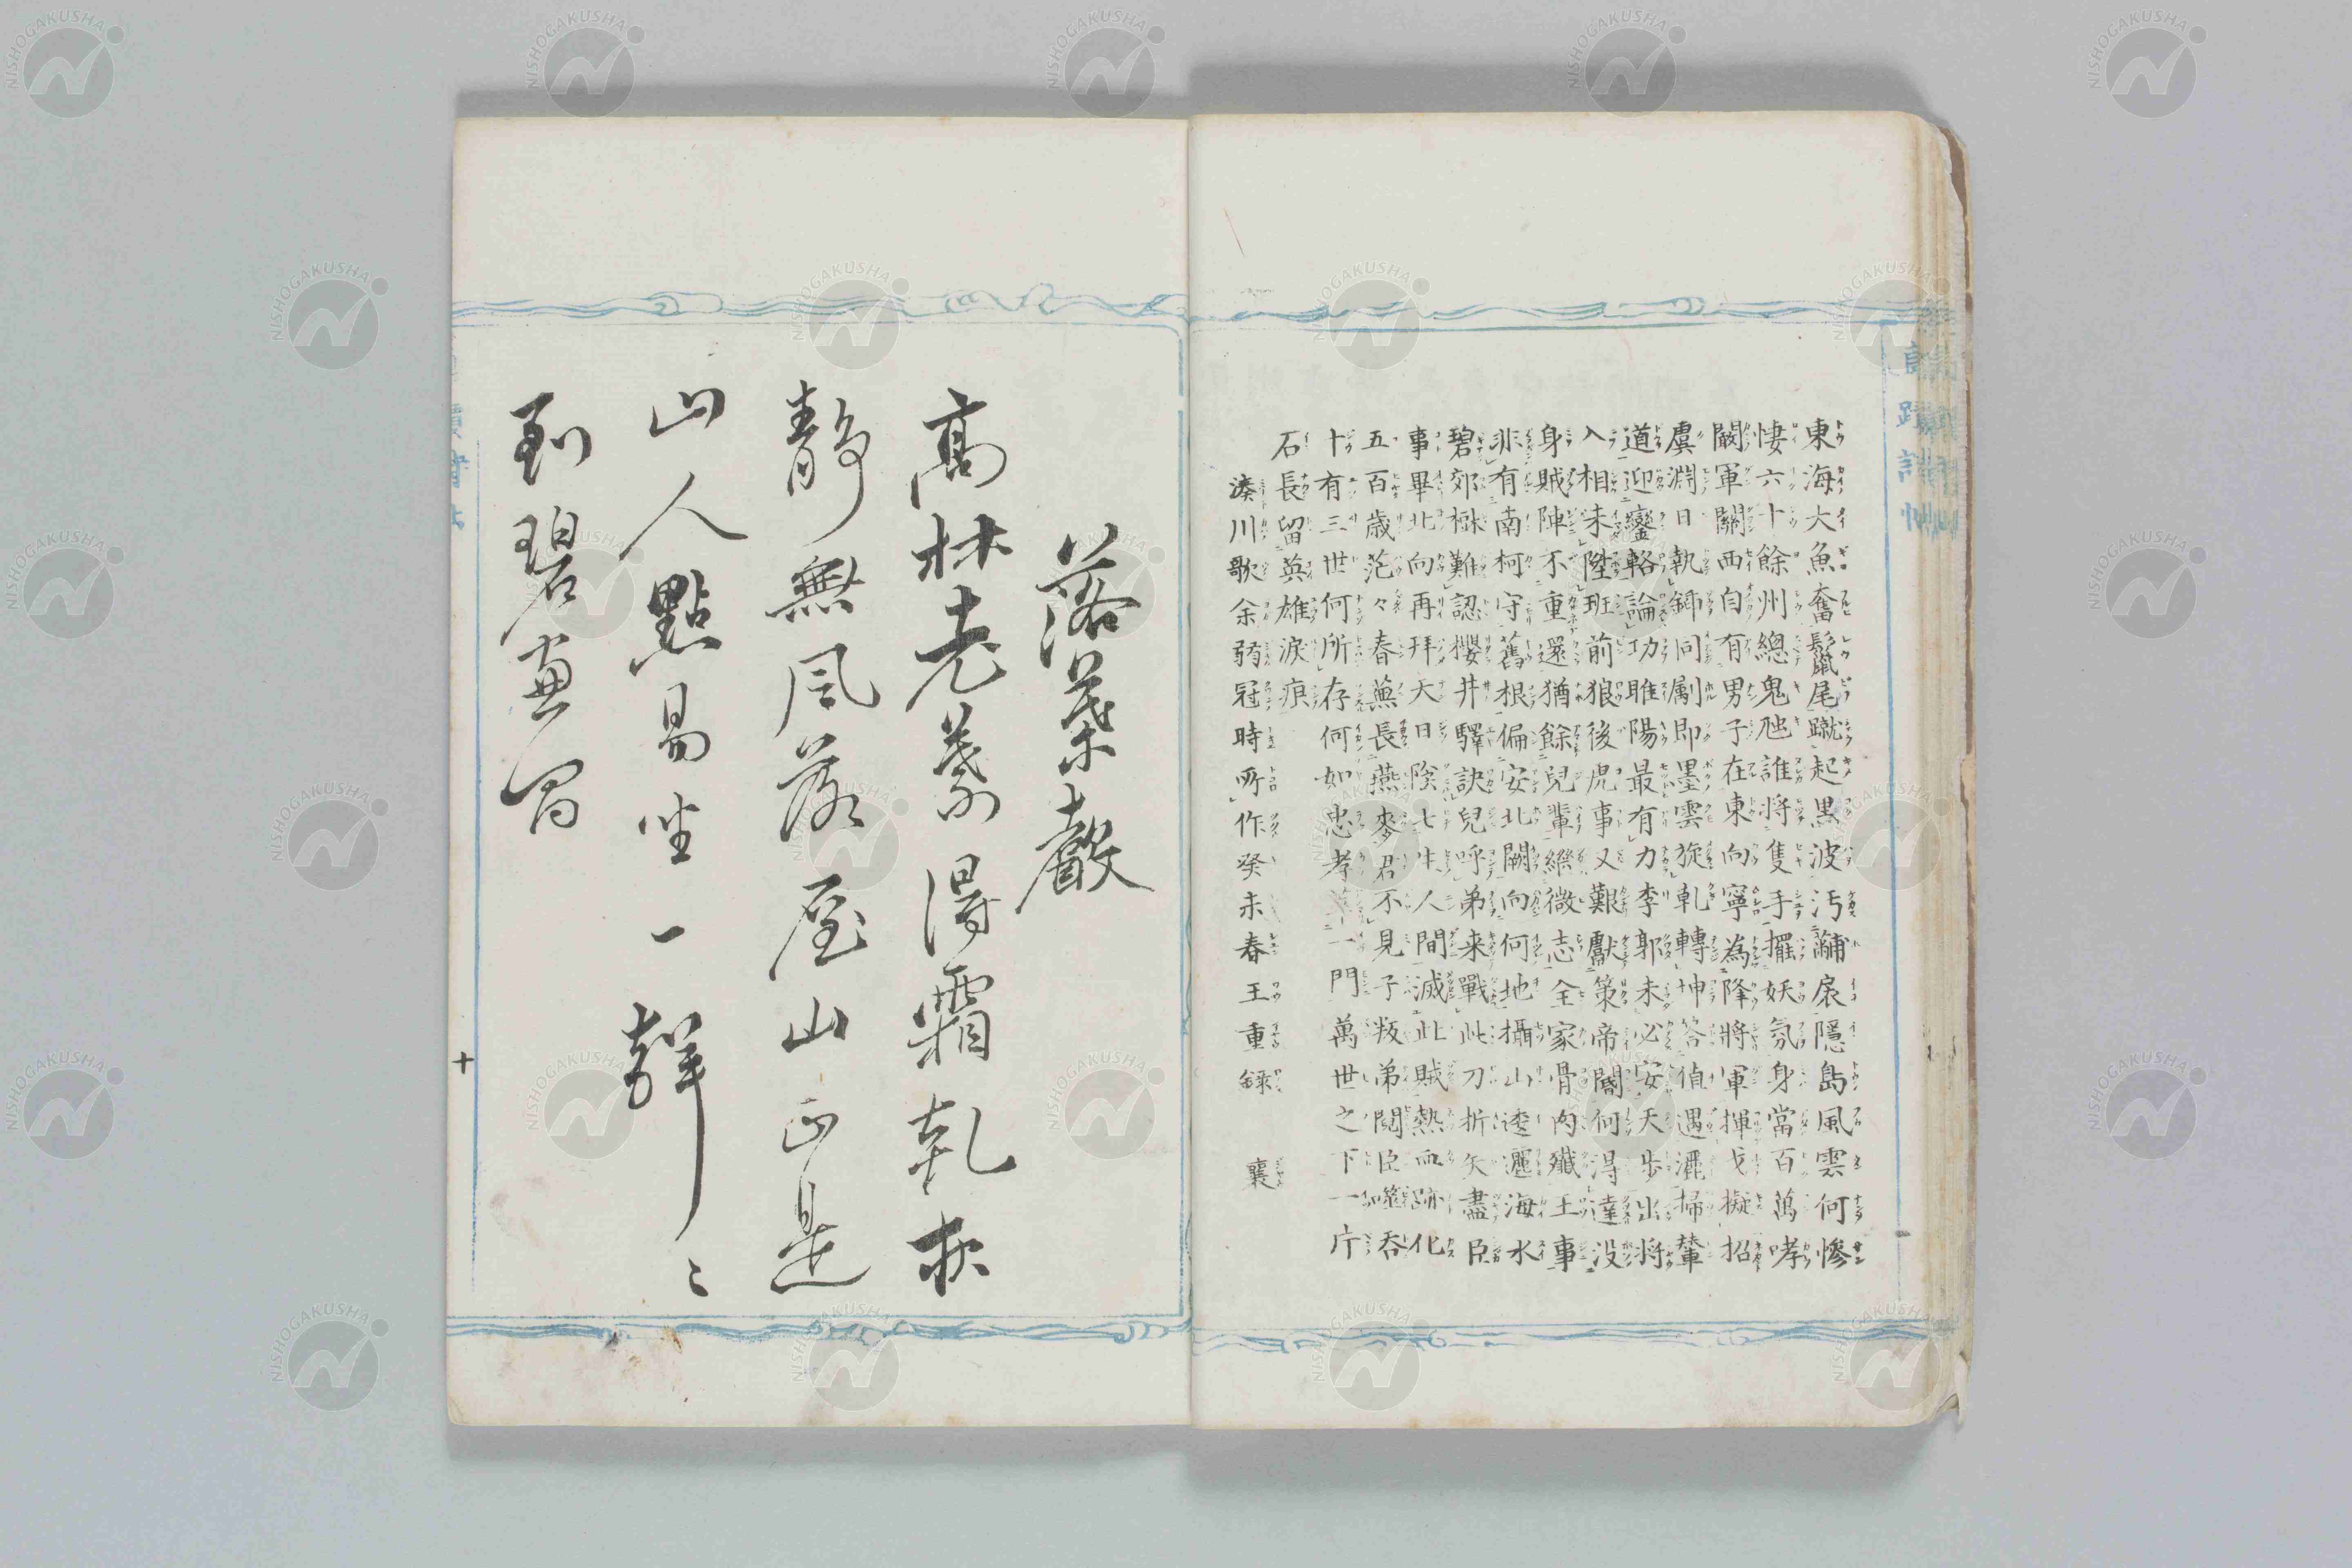 東海大魚奮鬣尾蹴起黒波汚黼扆隱島風雲何慘
悽六十餘州總鬼虺誰將隻手擢妖氛身當百萬哮
闞軍關西自有男子在東向寧為降將軍揮戈擬招
虞淵日執鉏同劚即墨雲旋乹轉坤答値遇灑掃輦
道迎鑾輅論功睢陽最有力李郭未必安天歩出將
入相未陞班前狼後虎事又艱獻策帝閽何得達沒
身賊陣不重還猶餘兒輩繼微志全家骨肉殲王事
非有南柯守舊根偏安北闕向何地攝山逶邐海水
碧郊樹難認櫻井驛訣兒呼弟来戰此刀折矢盡臣
事畢北向再拜天日陰七生人間滅此賊熱血跡化
五百歳茫々春蕪長燕麥君不見子叛弟鬩臣噬呑
十有三世何所存何如忠孝萃一門萬世之下一片
石長留英雄淚痕
湊川歌余弱冠時所作癸未春王重録 襄
落葉聲
高林老葉得霜乾夜
靜無風落屋山正是
山人點易坐一聲〻
到碧
十